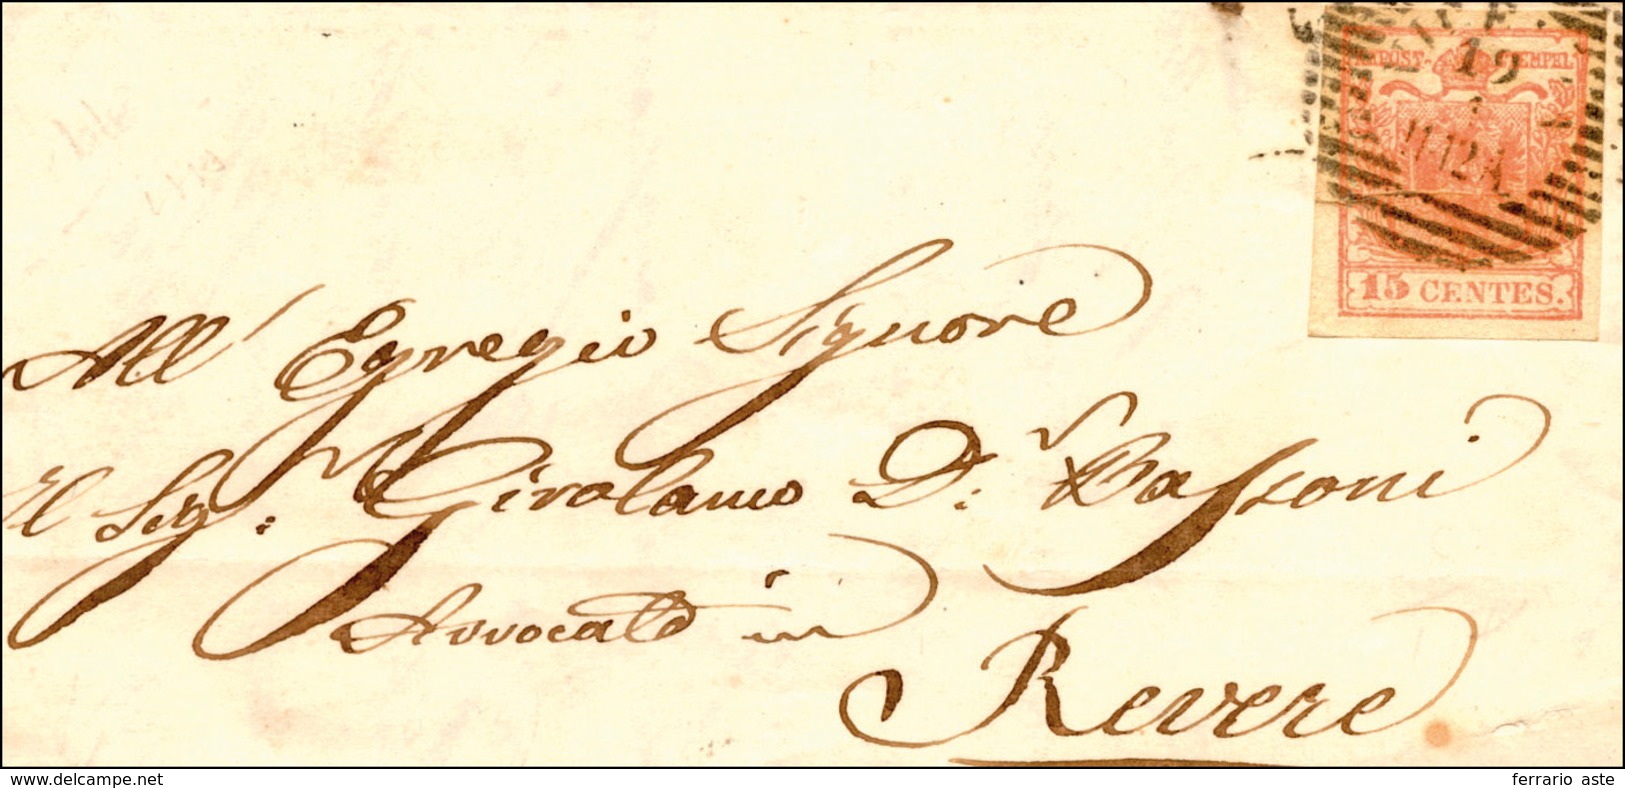 K.K. POST-STEMPEL
19
15 CENTES.
All' Egregio Signore
Il Sig: Girolamo D.r Bassoni
Avvocato in
Revere
www.delcampe.net
ferrario aste